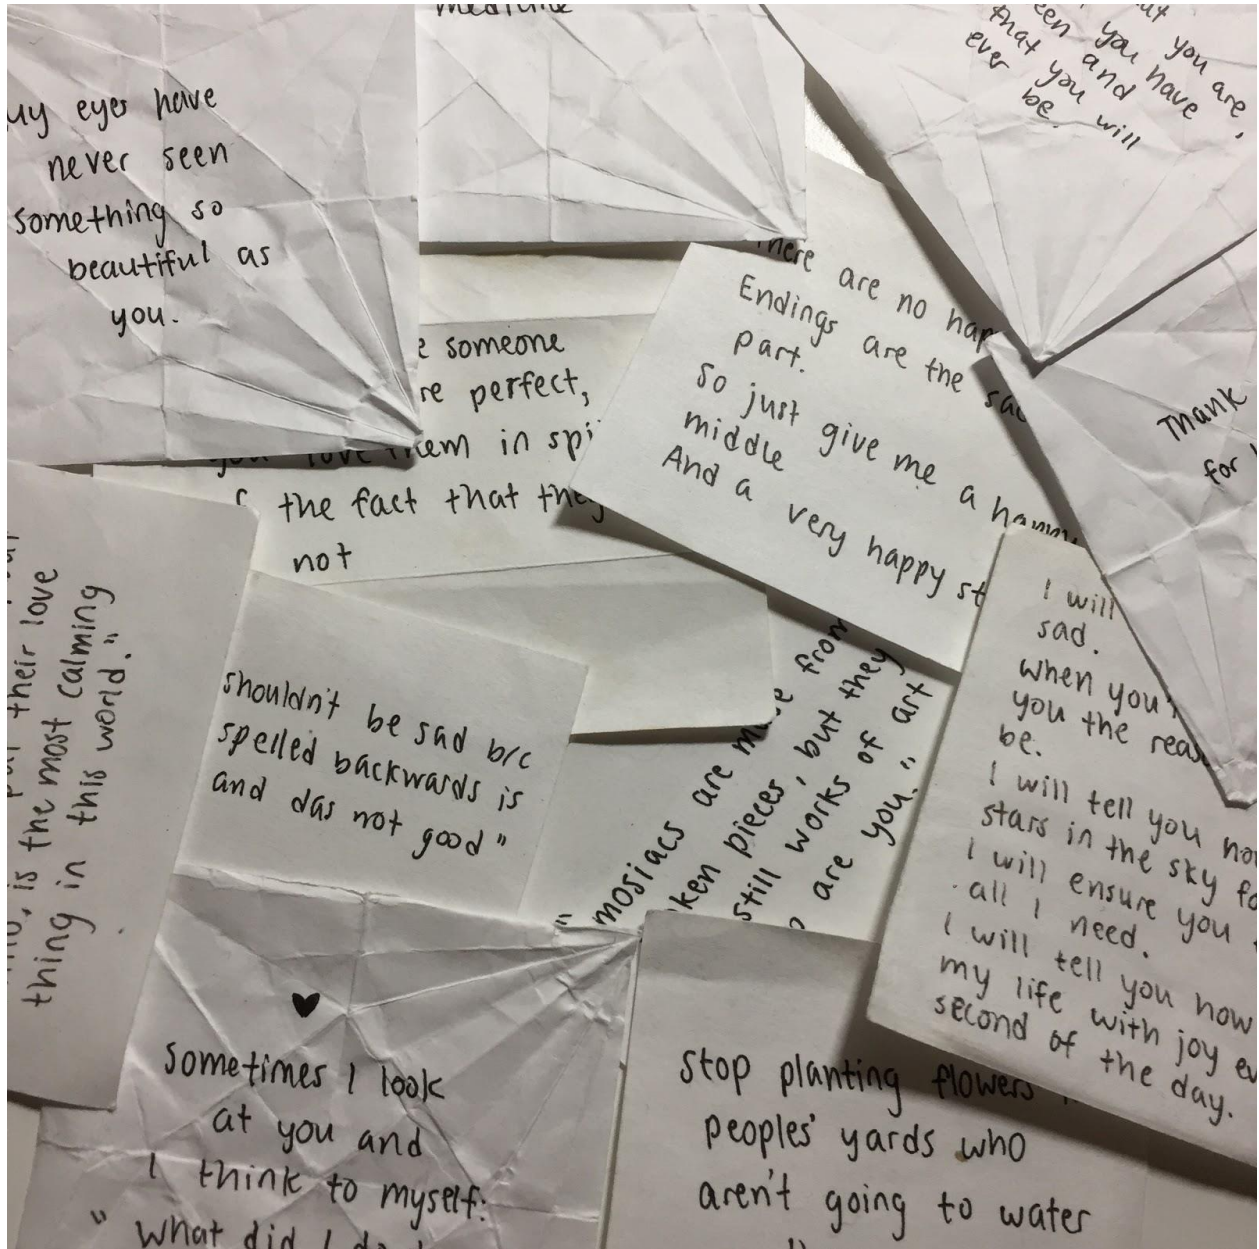 my eyes have
never seen
something so
beautiful as
you.
medicine
you are,
you have
and
that you will
ever be.
someone
perfect,
you love them in
the fact that they
not
There are no
Endings are the
part.
So just give me a happy
middle
And a very happy
Thank
for
their love
is the most calming
thing in this world."
shouldn't be sad b/c
spelled backwards is
and das not good"
"mosiacs are made from
pieces, but they
still works of art
are you."
I will
sad.
when
you the
be.
I will tell you
stars in the sky
I will ensure you
all I need.
I will tell you how
my life with joy
second of the day.
♥
sometimes I look
at you and
I think to myself:
"What did I
stop planting flowers
peoples' yards who
aren't going to water